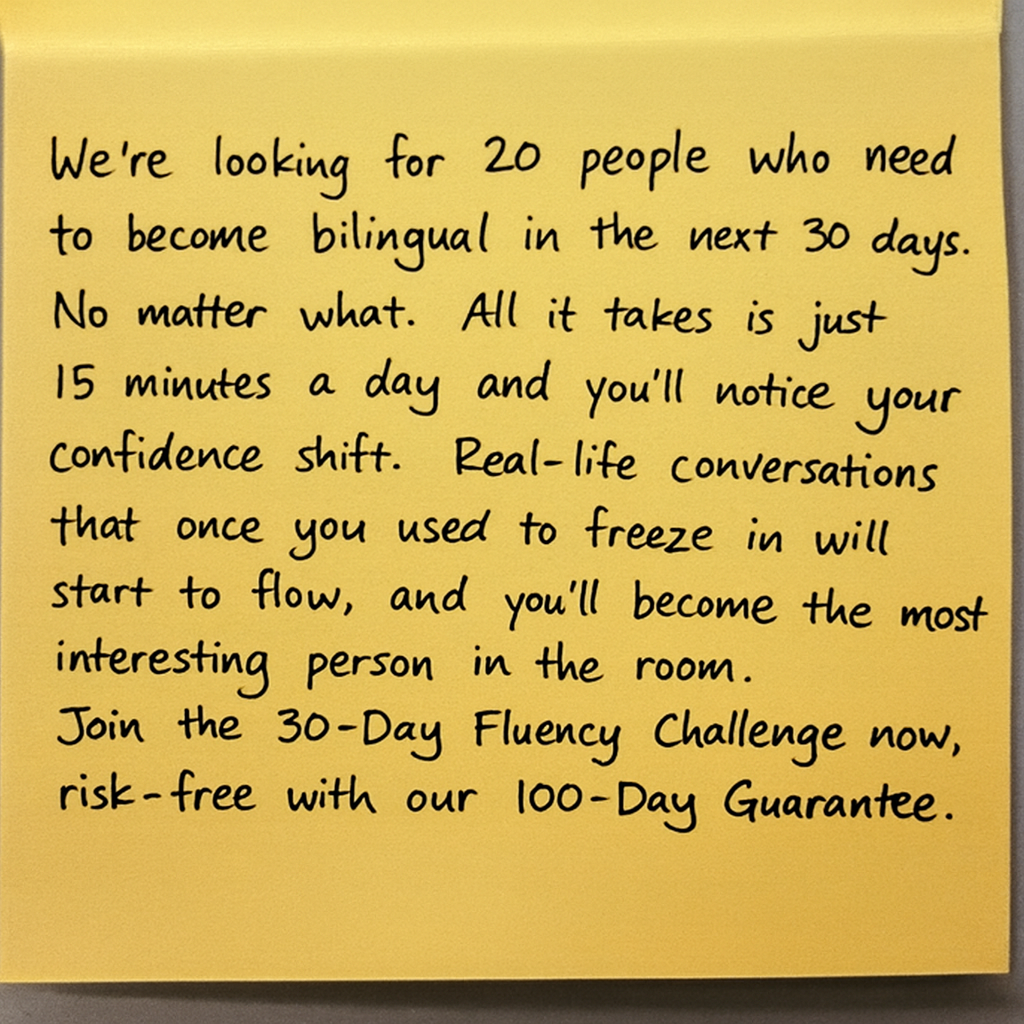 We're looking for 20 people who need
to become bilingual in the next 30 days.
No matter what. All it takes is just
15 minutes a day and you'll notice your
confidence shift. Real-life conversations
that once you used to freeze in will
start to flow, and you'll become the most
interesting person in the room.
Join the 30-Day Fluency Challenge now,
risk-free with our 100-Day Guarantee.